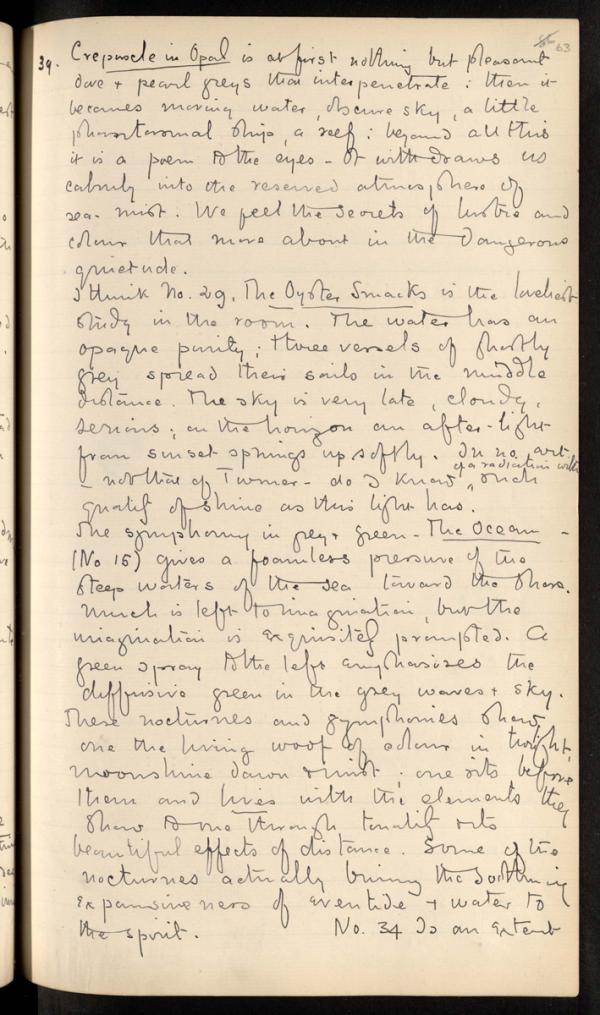 63
39. Crepuscle in Opal is at first nothing but pleasant
dove + pearl greys that interpenetrate : then it
becomes moving water, obscure sky, a little
phantasmal ship, a reef : beyond all this
it is a poem to the eyes - It withdraws us
calmly into the reserved atmosphere of
sea-mist. We feel the secrets of lustre and
colour that move about in the dangerous
quietude.
I think No. 29, The Oyster Smacks is the loveliest
study in the room. The water has an
opaque purity; three vessels of ghostly
grey spread their sails in the middle
distance. The sky is very late, cloudy,
serious; on the horizon an after-light
from sunset springs up softly. In no art
- not that of Turner - do I know of a radiation with such
quality of shine as this light has.
The symphony in grey + green - The Ocean -
(No 15) gives a foamless pressure of the
steep waters of the sea toward the shore.
Much is left to imagination, but the
imagination is exquisitely prompted. A
green spray to the left emphasises the
diffusive green in the grey waves + sky.
These nocturnes and symphonies show
one the living woof of colour in twilight,
moonshine dawn & mist; one sits before
them and lives with the elements they
show to one through tonality & its
beautiful effects of distance. Some of the
nocturnes actually bring the soothing
expansiveness of eventide + water to
the spirit. No. 34 Is an extent